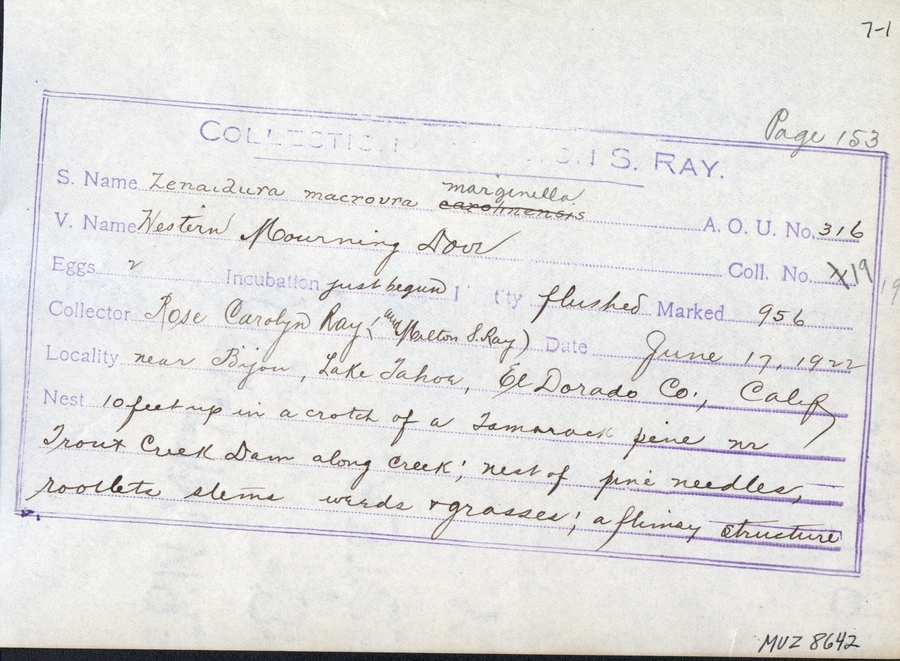 7-1
Page 153
COLLECTION S. RAY.
S. Name Zenaidura macroura carolinensis marginella A. O. U. No. 316
V. Name Western Mourning Dove Coll. No. 19
Eggs 2 Incubation just begun I t'ty flushed Marked 956
Collector Rose Carolyn Ray (and Milton S. Ray) Date June 17, 1922
Locality near Bijou, Lake Tahoe, El Dorado Co., Calif
Nest 10 feet up in a crotch of a Tamarack pine nr
Trout Creek Dam along creek; nest of pine needles,
rootlets stems weeds & grasses; a flimsy structure
MVZ 8642